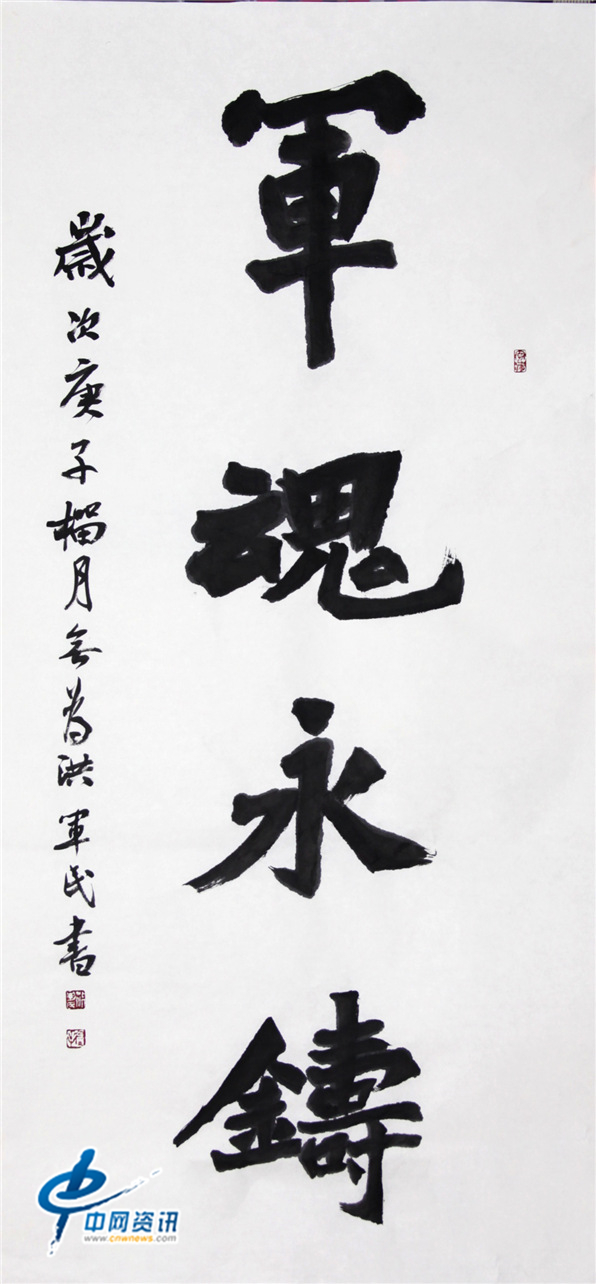 軍魂永鑄
歲次庚子榴月吉首洪軍民書
中网资讯
www.cnwnews.com